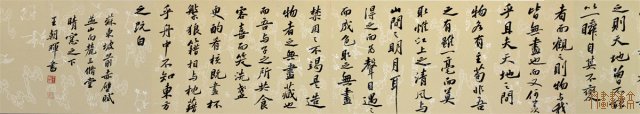 之則天地曾不能
以一瞬自其不變
者而觀之則物與我
皆無盡也而又何羨
乎且夫天地之間
物各有主苟非吾
之有雖一毫而莫
取惟江上之清風與
山間之明月耳
得之而為聲目遇之
而成色取之無
禁用之不竭是造
物者之無盡藏也
而吾與子之所共食
客喜而笑洗盞
更酌肴核既盡杯
盤狼籍相與枕藉
乎舟中不知東方
之既白
蘇東坡前赤壁賦
山向麓三借堂
晴窗之下
王朝暉書